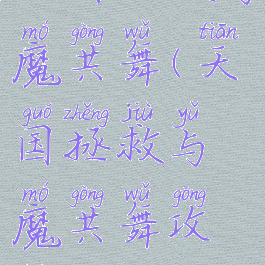 mó gòng wǔ tiān
魔共舞(天
guó zhěng jiù yǔ
国拯救与
mó gòng wǔ gōng
魔共舞攻